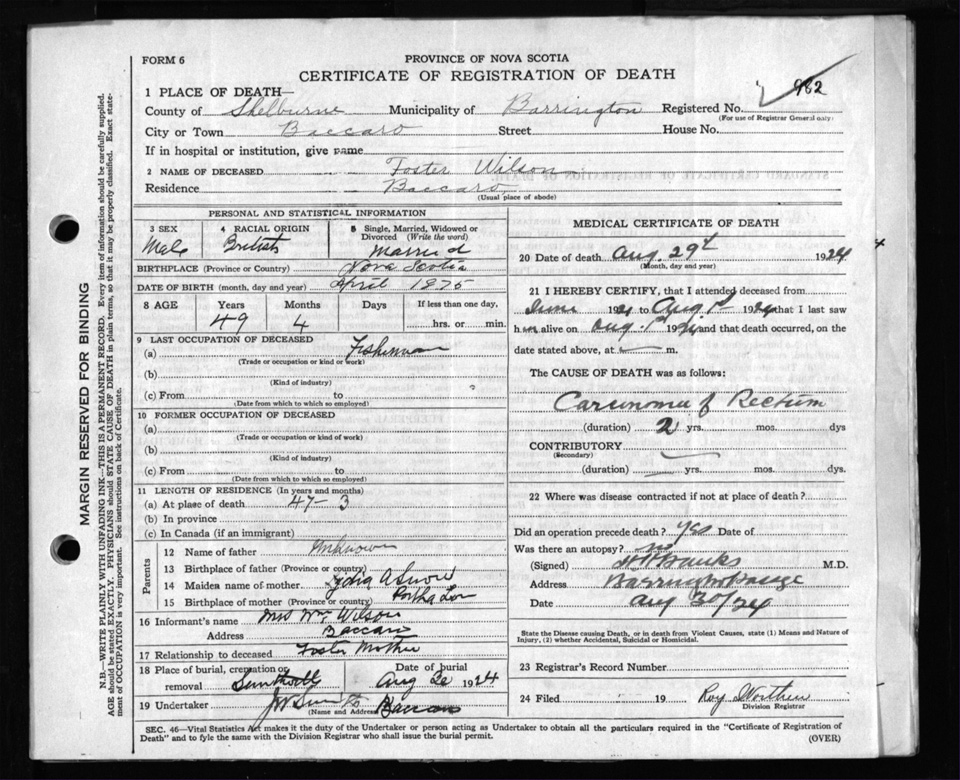 FORM 6
PROVINCE OF NOVA SCOTIA
CERTIFICATE OF REGISTRATION OF DEATH
982
1 PLACE OF DEATH—
County of Shelburne Municipality of Barrington Registered No.
(For use of Registrar General only)
City or Town Baccaro Street House No.
If in hospital or institution, give name
2 NAME OF DECEASED Foster Wilson
Residence Baccaro
(Usual place of abode)
MARGIN RESERVED FOR BINDING
N.B.—WRITE PLAINLY WITH UNFADING INK—THIS IS A PERMANENT RECORD. Every item of information should be carefully supplied.
AGE should be stated EXACTLY. PHYSICIANS should STATE CAUSE OF DEATH in plain terms, so that it may be properly classified. Exact state-
ment of OCCUPATION is very important. See instructions on back of Certificate.
PERSONAL AND STATISTICAL INFORMATION
3 SEX 4 RACIAL ORIGIN 5 Single, Married, Widowed or
Divorced (Write the word)
Male British Married
BIRTHPLACE (Province or Country) Nova Scotia
DATE OF BIRTH (month, day and year) April 1875
8 AGE Years Months Days If less than one day,
49 4 hrs. or min.
9 LAST OCCUPATION OF DECEASED
(a) Fisherman
(Trade or occupation or kind or work)
(b)
(Kind of industry)
(c) From to
(Date from which to which so employed)
10 FORMER OCCUPATION OF DECEASED
(a)
(Trade or occupation or kind of work)
(b)
(Kind of industry)
(c) From to
(Date from which to which so employed)
11 LENGTH OF RESIDENCE (In years and months)
(a) At place of death 47 - 3
(b) In province
(c) In Canada (if an immigrant)
Parents
12 Name of father Unknown
13 Birthplace of father (Province or country)
14 Maiden name of mother Lydia A Snow
15 Birthplace of mother (Province or country)
16 Informant's name Mrs Wm Wilson
Address Baccaro
17 Relationship to deceased Foster Mother
18 Place of burial, cremation or Date of burial
removal Smithville Aug 1924
19 Undertaker Baccaro
(Name and Address)
MEDICAL CERTIFICATE OF DEATH
20 Date of death Aug. 29 1924
(Month, day and year)
21 I HEREBY CERTIFY, that I attended deceased from
June 192 to Aug 1924 that I last saw
him alive on Aug. 1924 and that death occurred, on the
date stated above, at m.
The CAUSE OF DEATH was as follows:
Carcinoma of Rectum
(duration) 2 yrs. mos. dys
CONTRIBUTORY
(Secondary)
(duration) yrs. mos. dys.
22 Where was disease contracted if not at place of death?
Did an operation precede death? yes Date of
Was there an autopsy? no
(Signed) Banks M.D.
Address Barrington Passage
Date Aug 30/24
State the Disease causing Death, or in death from Violent Causes, state (1) Means and Nature of
Injury, (2) whether Accidental, Suicidal or Homicidal.
23 Registrar's Record Number
24 Filed 19 Roy
Division Registrar
SEC. 46—Vital Statistics Act makes it the duty of the Undertaker or person acting as Undertaker to obtain all the particulars required in the "Certificate of Registration of
Death" and to fyle the same with the Division Registrar who shall issue the burial permit.
(OVER)